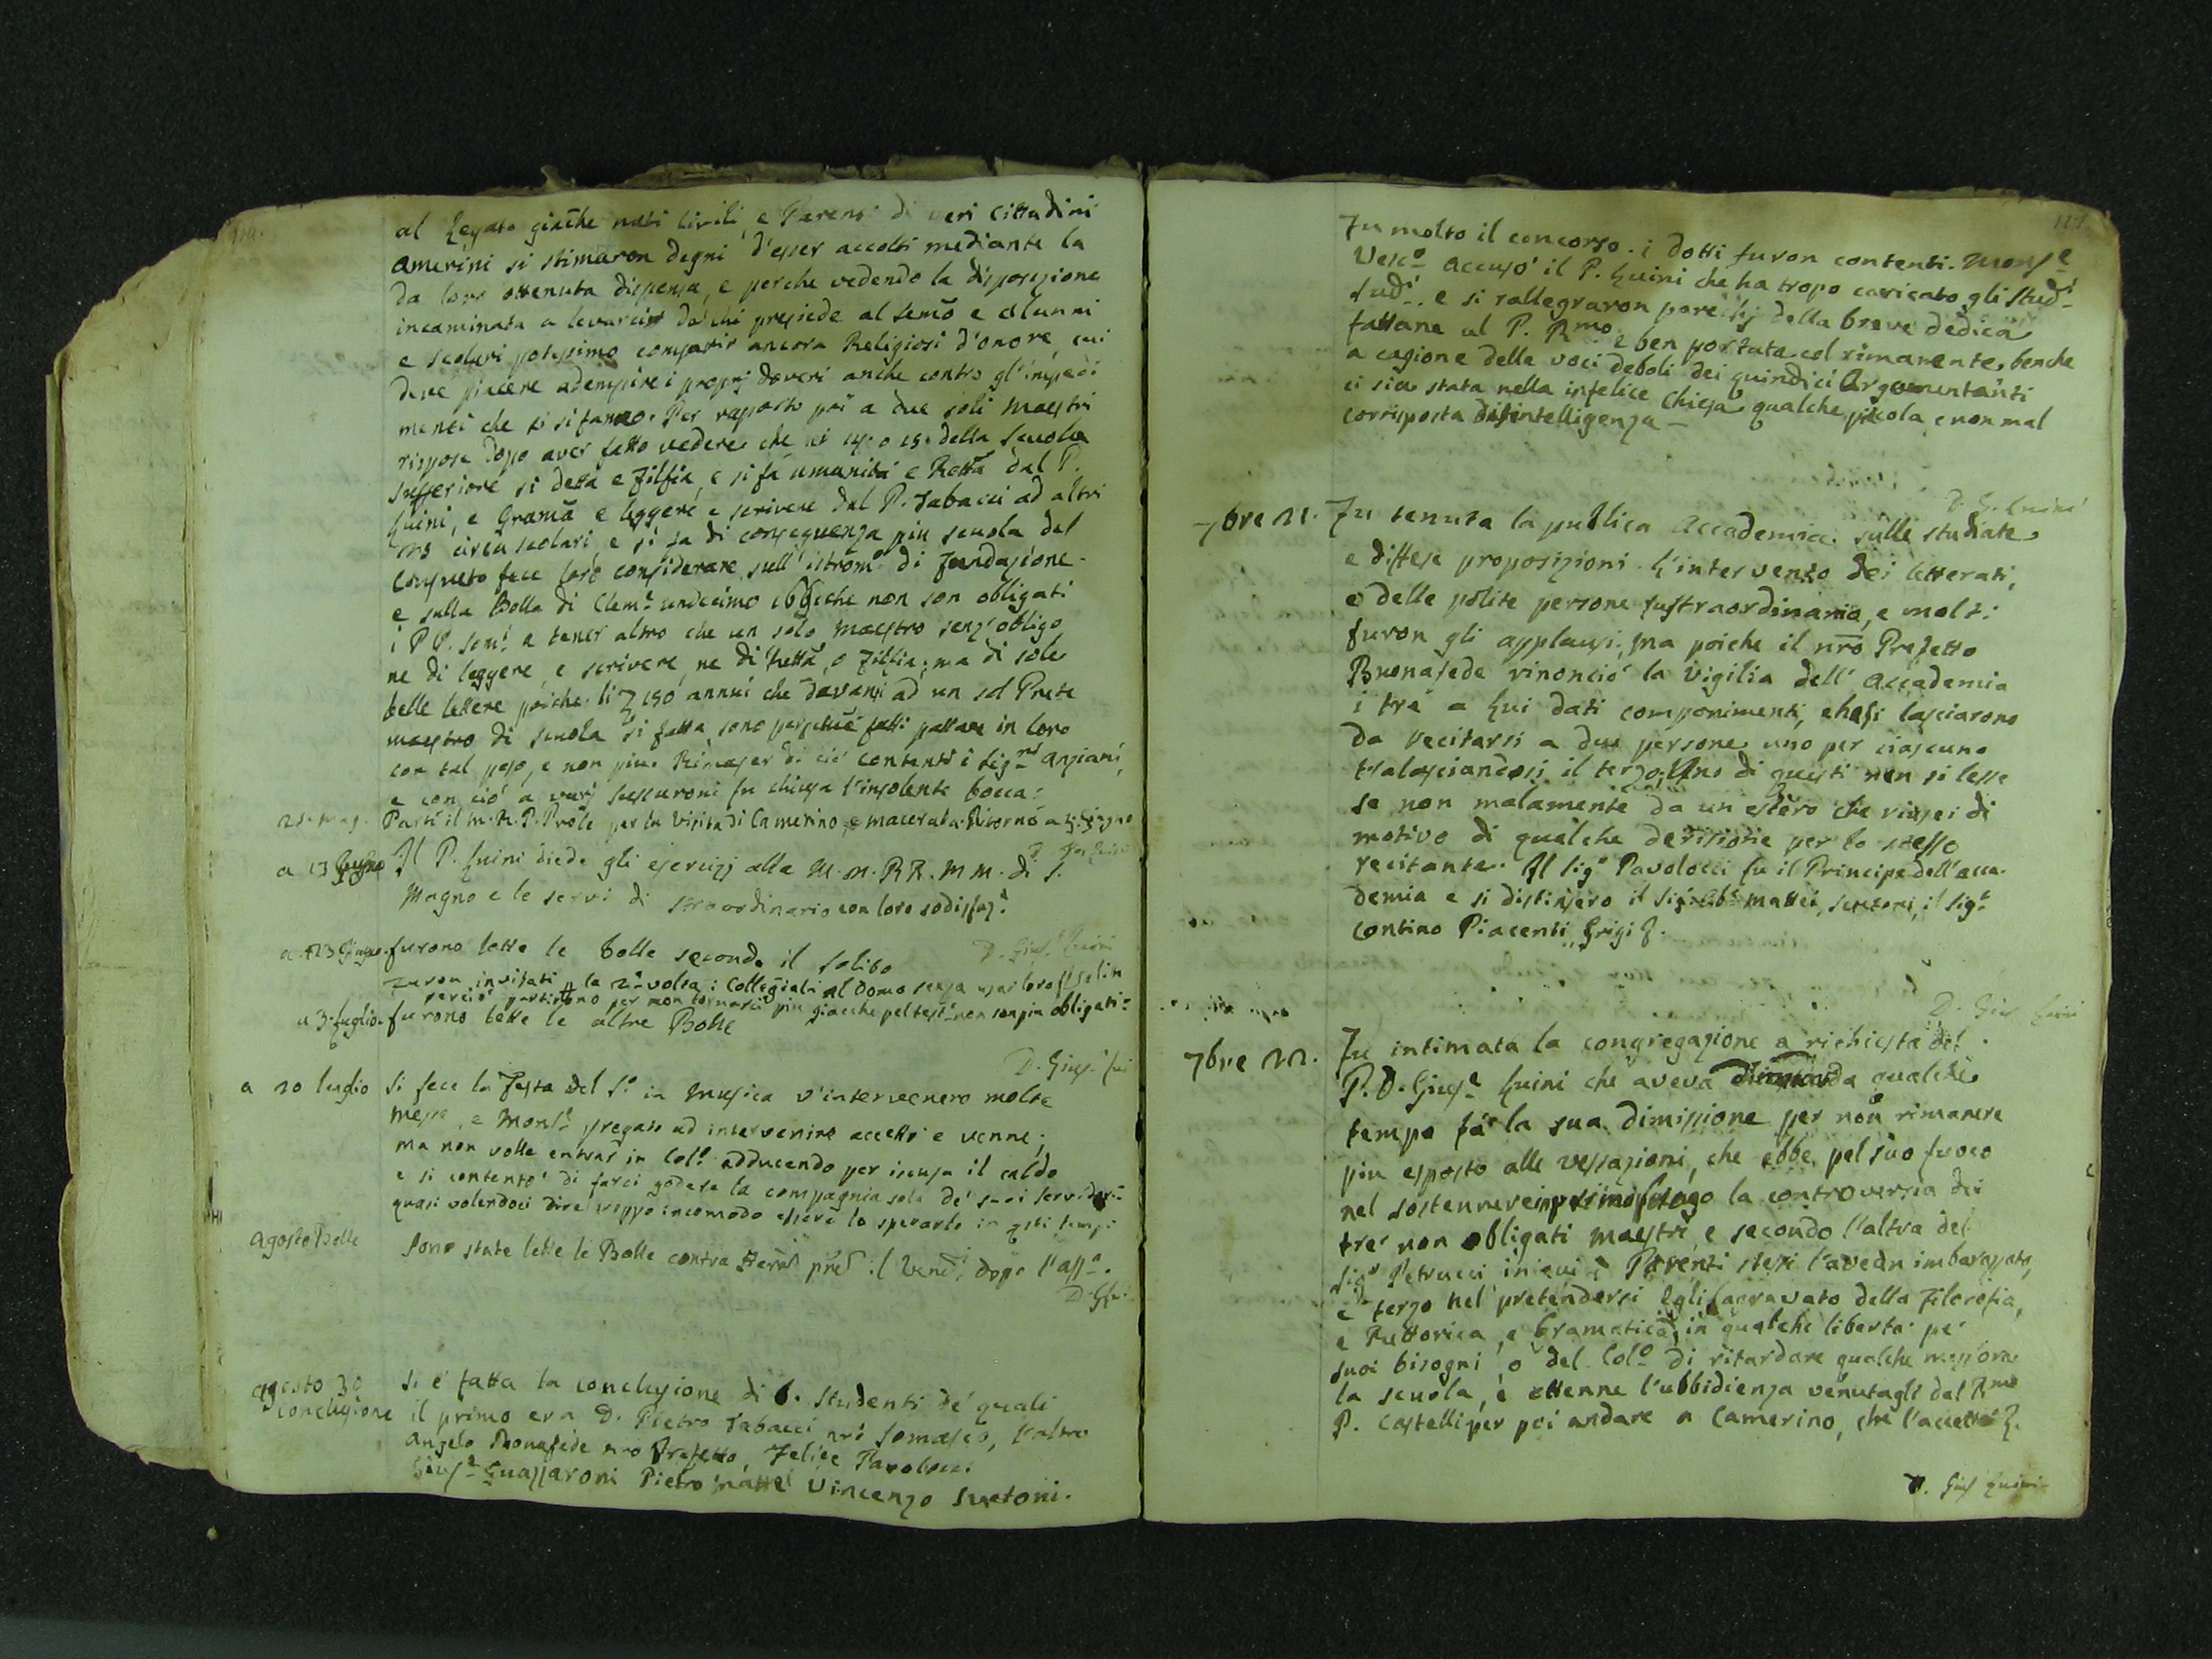 al Legato giache nati Civili, e Parenti di veri Cittadini
Amerini si stimaron degni d'esser accolti mediante la
da loro ottenuta dispensa, e perche vedendo la disposizione
incaminata a levarci da chi presiede al Semo e alunni
e scolari potessimo comparir ancora Religiosi d'onore, cui
deve piacere adempire i proprj doveri anche contro gl'impedi
menti che si fanno. Per rapporto poi a due soli Maestri
rispose dopo aver fatto vedere che della Scuola
Superiore si detta e Filfia, e si fa umanità e Retta dal P.
Luini, e Grama e leggere e scrivere dal P. Tabacci ad altri
circa scolari, e si fa di conseguenza piu scuola del
consueto fece loro considerare sull'istrom.o di Fundazione
e sulla Bolla di Clem.e undecimo che non son obligati
i PP. Som.i a tener altro che un solo Maestro senz'obligo
ne di leggere, e scrivere, ne di Retta, o Filfia; ma di sole
belle lettere poiche li 150 annui che davansi ad un sol Prete
maestro di scuola si fatta sono passare in loro
con tal peso, e non piu. Rimaser di ciò contenti i Sig.ri Anziani,
e con ciò a varj sussuroni fu chiusa l'insolente bocca.
21. Mag. Partì il M. R. P. Prole per la Visita di Camerino e Macerata. Ritornò a Giugno
a 13 Giugno Il P. Luini diede gli esercizj alle M. M. RR. MM. di S.
Magno e le servì di straordinario con loro sodisfaz.e
D. Gius.e Luini
a 23 Giugno. furono lette le bolle secondo il solito
Furon invitati la 2a volta i Collegiali al Domo senza
perciò partirono per non tornarci piu giacche non son piu obligati
a 3. Luglio. furono lette le altre Bolle
D. Gius.e
a 20 luglio Si fece la Festa del S.o in Musica v'intervenero molte
Messe, e Mons.e pregato ad intervenire accettò e venne;
ma non volle entrar in Col.o adducendo per iscusa il caldo
e si contentò di farci godere la compagnia sola de' suoi Servidori
quasi volendoci dire troppo incomodo essere lo sperarlo in tempi
Agosto Bolle Sono state lette le Bolle contra il Vend.i dopo l'
Agosto 30 Si è fatta la conclusione di 6. studenti de' quali
Conclusione il primo era D. Pietro Tabacci nro Somasco, l'altro
Angelo Bonafede nro Prefetto, Felice Pavolocci
Gius.e Guazzaroni Pietro Mattei Vincenzo Suetoni.
117.
Fu molto il concorso. i dotti furon contenti. Mons.e
Vesc.o accusò il P. Luini che ha tropo caricato gli Stud.i
Sud.i. e si rallegraron parechj della breve dedica
fattane al P. Rmo e ben portata col rimanente, benche
a cagione delle voci deboli dei quindici Argomentanti
ci sia stata nella infelice Chiesa qualche picola, e non mal
corrisposta disintelligenza
D. G. Luini
7bre 21. Fu tenuta la publica Accademia sulle studiate
e diffese proposizioni. L'intervento dei letterati,
e delle polite persone fu straordinario, e molti
furon gli applausi, ma poiche il nro Prefetto
Buonafede rinonciò la Vigilia dell'Accademia
i trè a Lui dati componimenti, che si lasciarono
da recitarsi a due persone uno per ciascuno
tralasciandosi il terzo; Uno di questi non si lesse
se non malamente da un estero che riuscì di
motivo di qualche derisione per lo stesso
recitante. Il Sig.r Pavolocci fu il Principe dell'acca
demia e si distinsero il Sig.r Ab.e Mattei, Suetoni, il Sig.r
Contino Piacenti, Grigi &.
D. Gius Luini
7bre 22. Fu intimata la congregazione a richiesta del
P. D. Gius.e Luini che aveva da qualche
tempo fà la sua dimissione per non rimanere
piu esposto alle vessazioni, che ebbe pel suo fuoco
nel sostennere in primo luogo la controversia dei
tre non obligati Maestri, e secondo l'altra del
Sig.r Petrucci in cui i Parenti stessi l'avean imbarazzato,
e terzo nel pretendersi Egli sgravato della Filosofia,
e Rettorica, e Gramatica, in qualche libertà pe'
suoi bisogni o del Col.o di ritardare qualche mezz'ora
la scuola, e ottenne l'ubbidienza venutagli dal Rmo
P. Castelli per poi andare a Camerino, che l'accettò &.
D. Gius Luini